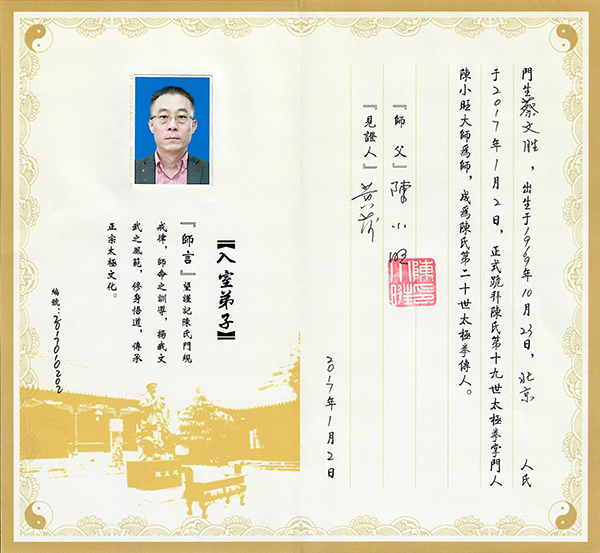 門生蔡文胜，出生于1969年10月23日，北京 人民
于2017年1月2日，正式跪拜陳氏第十九世太極拳掌門人
陳小旺大師爲師，成爲陳氏第二十世太極拳傳人。
『師父』陳小旺
『見證人』黄
2017年1月2日
【入室弟子】
『師言』望謹記陳氏門規
戒律，師命之訓導，揚我文
武之風範，修身悟道，傳承
正宗太極文化。
編號：2017010202